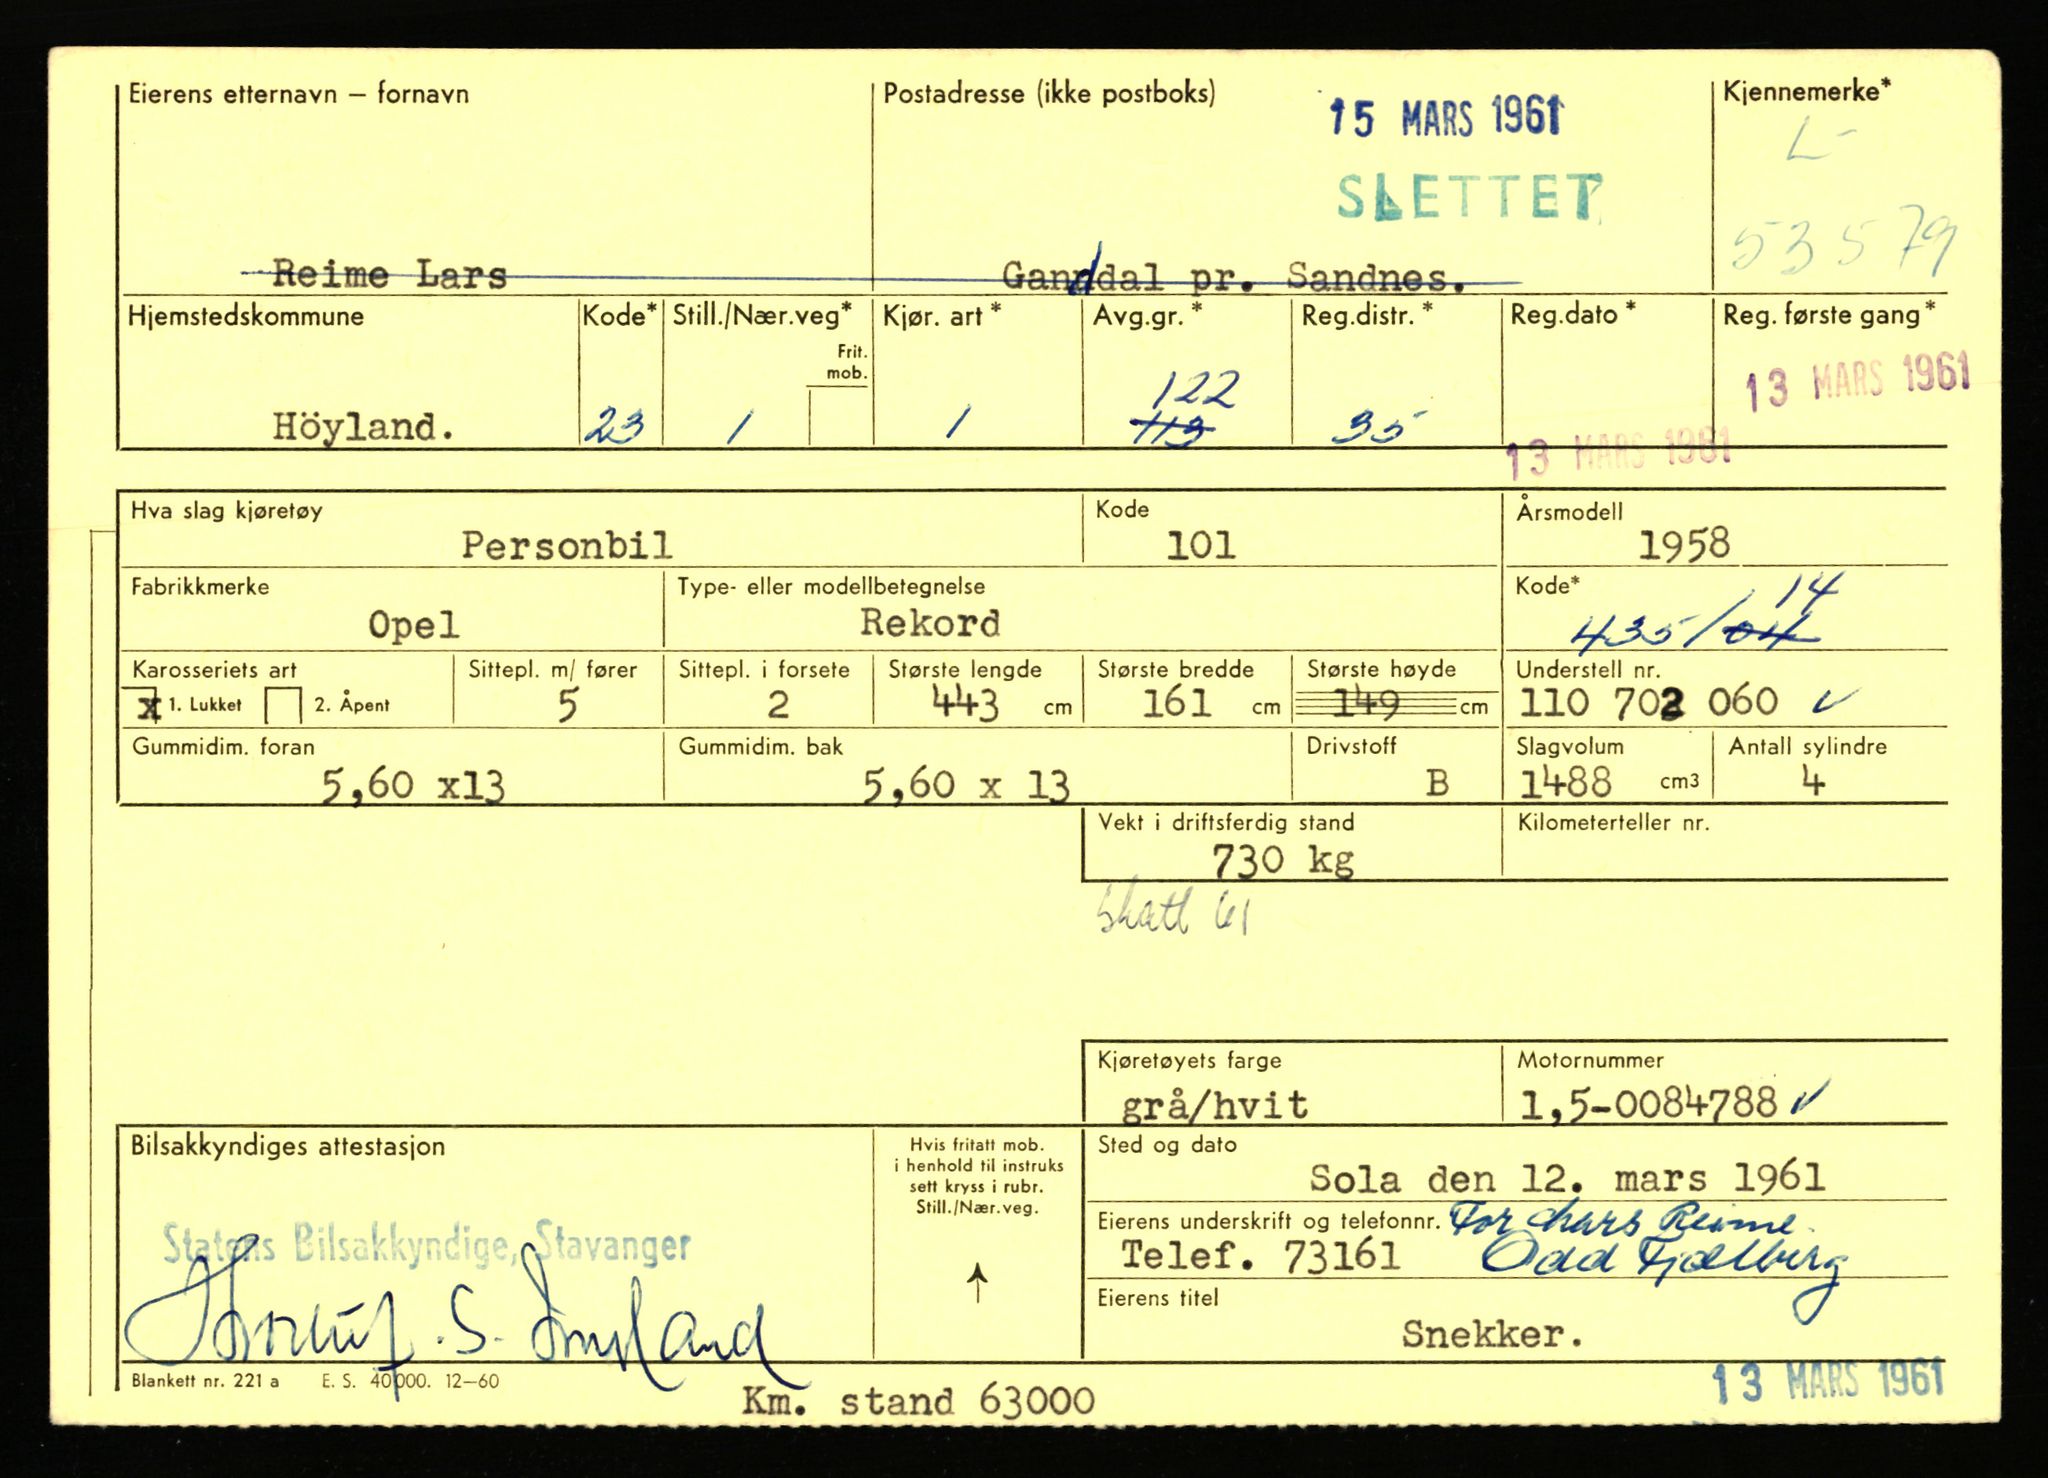 Eierens etternavn – fornavn
Postadresse (ikke postboks)
Kjennemerke*
15 MARS 1961
L-
SLETTET
53579
Reime Lars
Ganddal pr. Sandnes.
Hjemstedskommune
Kode*
Still./Nær.veg*
Kjør. art*
Avg.gr.*
Reg.distr.*
Reg.dato*
Reg. første gang*
Frit.
mob.
13 MARS 1961
122
Höyland.
23
1
1
113
35
13 MARS 1961
Hva slag kjøretøy
Kode
Årsmodell
Personbil
101
1958
Fabrikkmerke
Type- eller modellbetegnelse
Kode*
14
Opel
Rekord
435/04
Karosseriets art
Sittepl. m/ fører
Sittepl. i forsete
Største lengde
Største bredde
Største høyde
Understell nr.
x 1. Lukket
2. Åpent
5
2
443 cm
161 cm
149 cm
110 702 060
Gummidim. foran
Gummidim. bak
Drivstoff
Slagvolum
Antall sylindre
5,60 x13
5,60 x 13
B
1488 cm3
4
Vekt i driftsferdig stand
Kilometerteller nr.
730 kg
Skatt 61
Kjøretøyets farge
Motornummer
grå/hvit
1,5-0084788
Bilsakkyndiges attestasjon
Hvis fritatt mob.
i henhold til instruks
sett kryss i rubr.
Still./Nær.veg.
Sted og dato
Sola den 12. mars 1961
Eierens underskrift og telefonnr.
For Lars Reime.
Statens Bilsakkyndige, Stavanger
Telef. 73161
Odd Fjælberg
Eierens titel
Snekker.
Blankett nr. 221 a
E. S. 40 000. 12–60
13 MARS 1961
Km. stand 63000